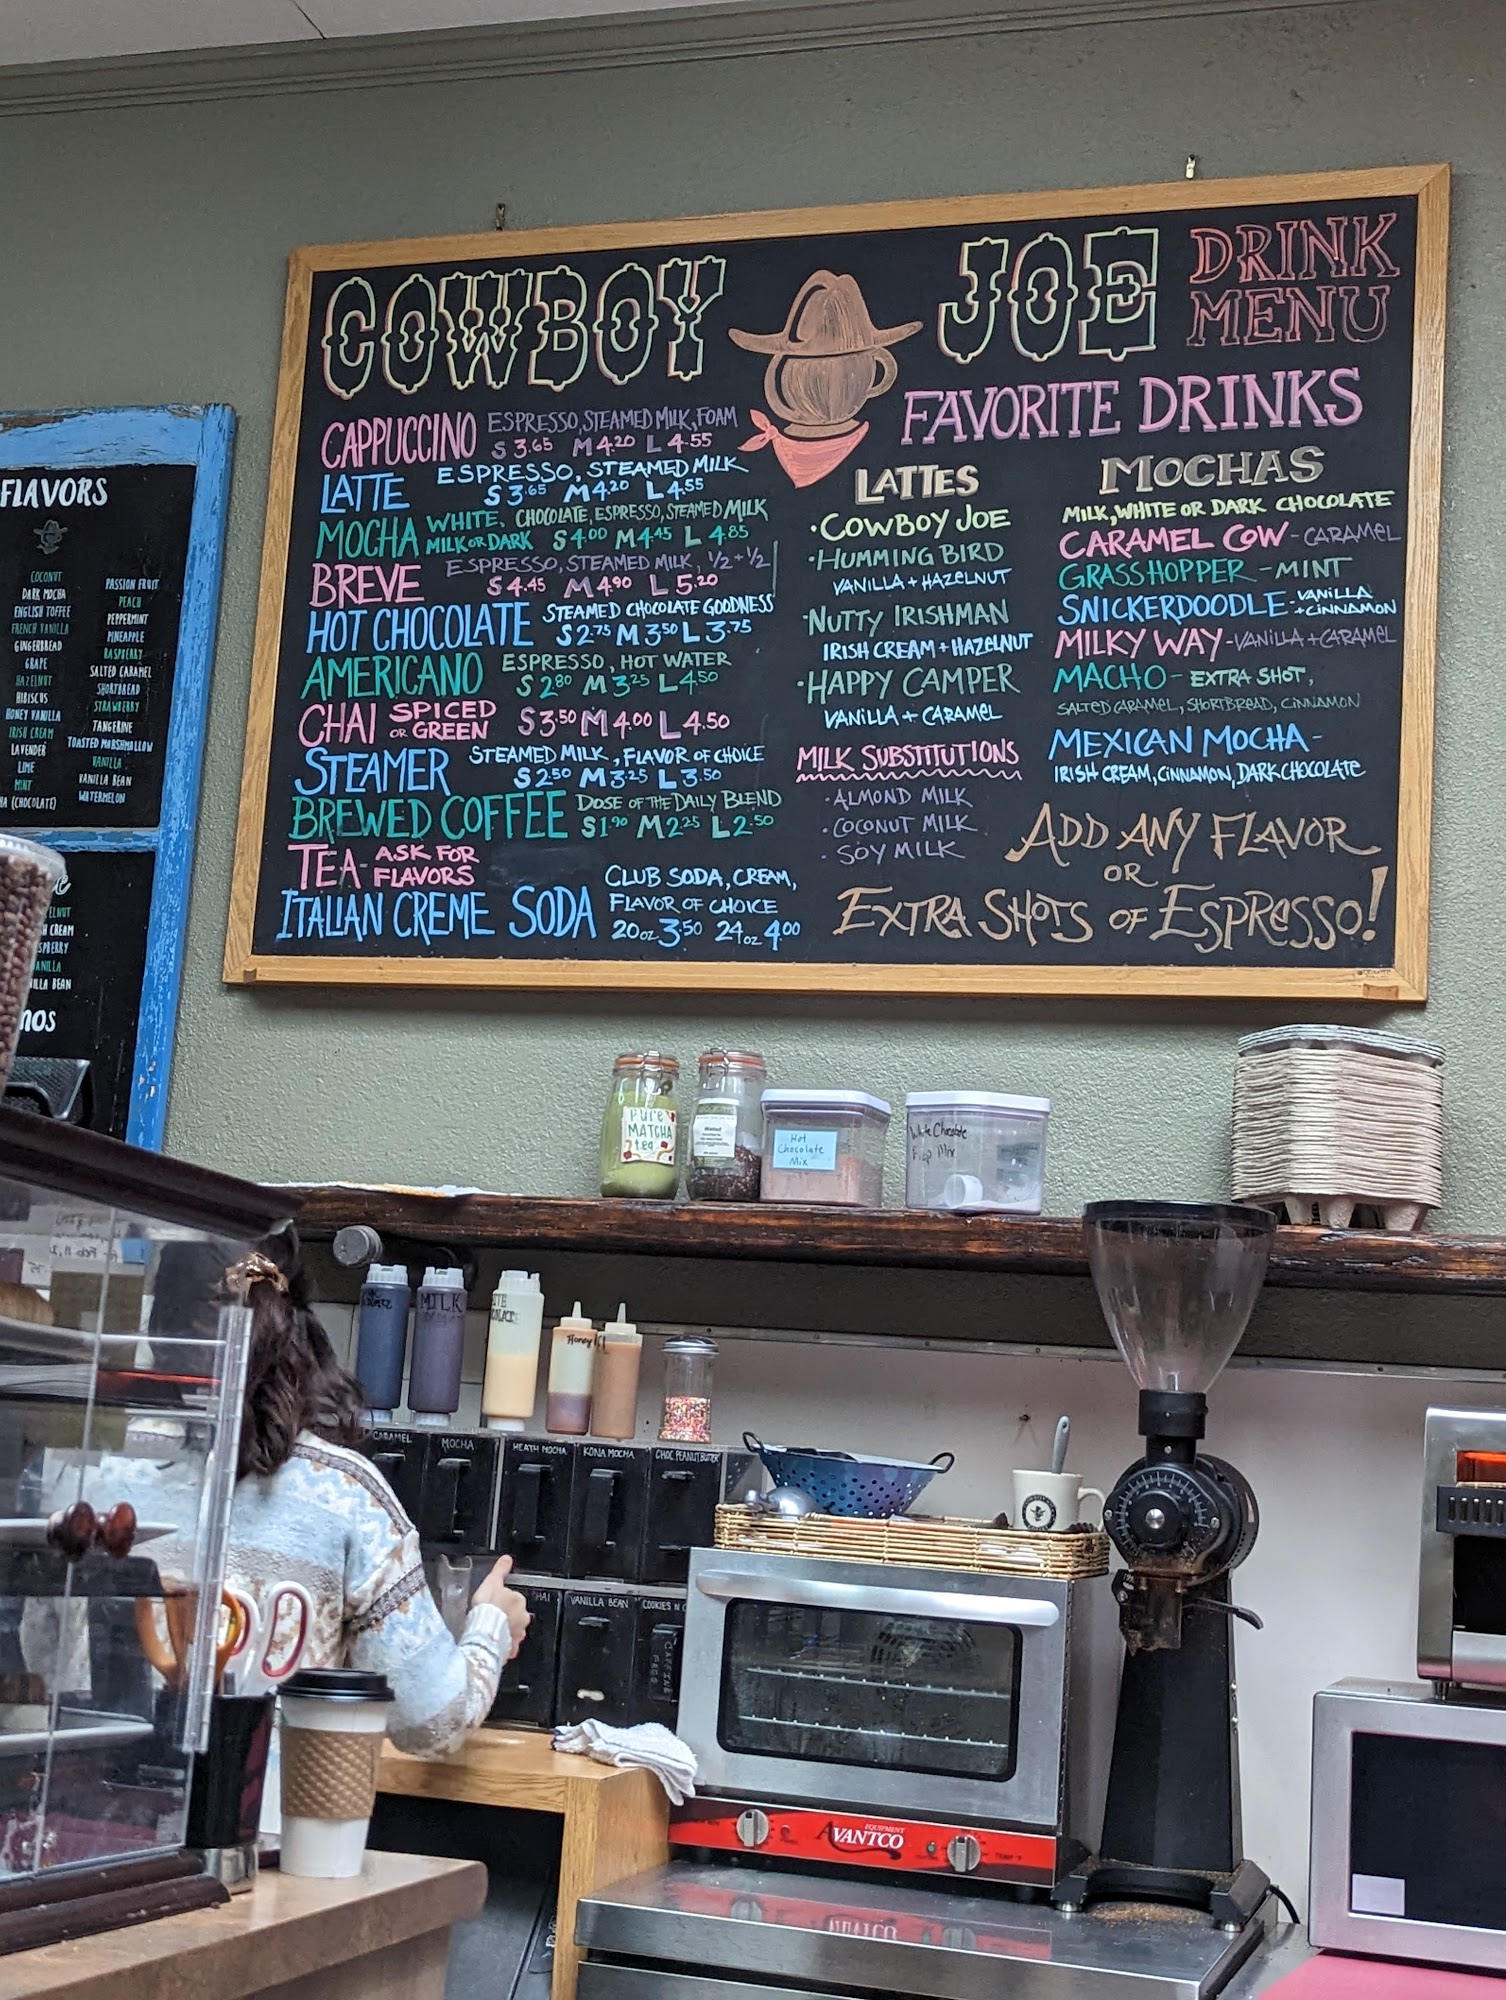 COWBOY JOE DRINK MENU
CAPPUCCINO ESPRESSO, STEAMED MILK, FOAM
S 3.65 M 4.20 L 4.55
LATTE ESPRESSO, STEAMED MILK
S 3.65 M 4.20 L 4.55
MOCHA WHITE, CHOCOLATE, ESPRESSO, STEAMED MILK
MILK OR DARK S 4.00 M 4.45 L 4.85
BREVE ESPRESSO, STEAMED MILK, 1/2 + 1/2
S 4.45 M 4.90 L 5.20
HOT CHOCOLATE STEAMED CHOCOLATE GOODNESS
S 2.75 M 3.50 L 3.75
AMERICANO ESPRESSO, HOT WATER
S 2.80 M 3.25 L 4.50
CHAI SPICED OR GREEN S 3.50 M 4.00 L 4.50
STEAMER STEAMED MILK, FLAVOR OF CHOICE
S 2.50 M 3.25 L 3.50
BREWED COFFEE DOSE OF THE DAILY BLEND
S 1.90 M 2.25 L 2.50
TEA - ASK FOR FLAVORS
ITALIAN CREME SODA CLUB SODA, CREAM,
FLAVOR OF CHOICE
20oz 3.50 24oz 4.00
FAVORITE DRINKS
LATTES
·COWBOY JOE
·HUMMING BIRD
VANILLA + HAZELNUT
·NUTTY IRISHMAN
IRISH CREAM + HAZELNUT
·HAPPY CAMPER
VANILLA + CARAMEL
MILK SUBSTITUTIONS
·ALMOND MILK
·COCONUT MILK
·SOY MILK
MOCHAS
MILK, WHITE OR DARK CHOCOLATE
CARAMEL COW - CARAMEL
GRASSHOPPER - MINT
SNICKERDOODLE - VANILLA + CINNAMON
MILKY WAY - VANILLA + CARAMEL
MACHO - EXTRA SHOT,
SALTED CARAMEL, SHORTBREAD, CINNAMON
MEXICAN MOCHA -
IRISH CREAM, CINNAMON, DARK CHOCOLATE
ADD ANY FLAVOR
OR
EXTRA SHOTS OF ESPRESSO!
FLAVORS
COCONUT
DARK MOCHA
ENGLISH TOFFEE
FRENCH VANILLA
GINGERBREAD
GRAPE
HAZELNUT
HIBISCUS
HONEY VANILLA
IRISH CREAM
LAVENDER
LIME
MINT
HA (CHOCOLATE)
PASSION FRUIT
PEACH
PEPPERMINT
PINEAPPLE
RASPBERRY
SALTED CARAMEL
SHORTBREAD
STRAWBERRY
TANGERINE
TOASTED MARSHMALLOW
VANILLA
VANILLA BEAN
WATERMELON
ELNUT
H CREAM
SPBERRY
ANILLA
ILLA BEAN
nos
PURE
MATCHA
tea
Hot
Chocolate
Mix
White Chocolate
MILK
Honey
CARAMEL
MOCHA
HEATH MOCHA
KONA MOCHA
CHOC. PEANUT BUTTER
HAI
VANILLA BEAN
COOKIES N C
CAFFINE
FREE
EQUIPMENT
AVANTCO